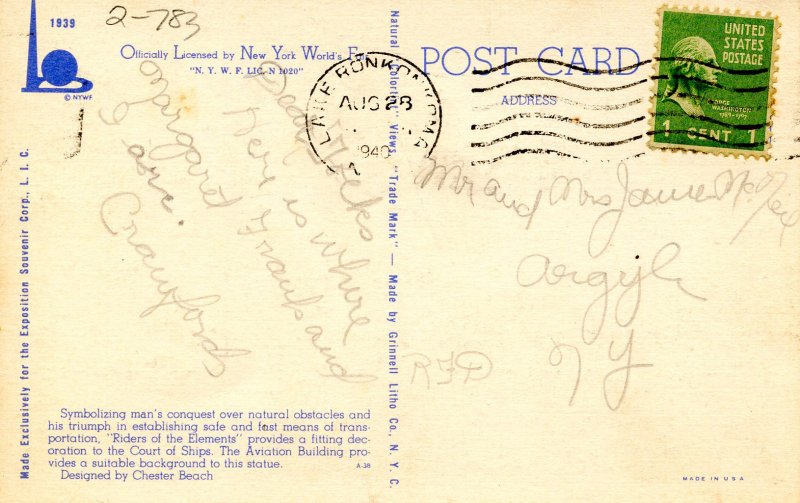 2-783
1939
© NYWF
Officially Licensed by New York World's Fair
"N. Y. W. F. LIC. N 1020"
Made Exclusively for the Exposition Souvenir Corp., L. I. C.
Dear
Here is where
Margaret Frank and
are.
Crawfords
Symbolizing man's conquest over natural obstacles and
his triumph in establishing safe and fast means of trans-
portation, "Riders of the Elements" provides a fitting dec-
oration to the Court of Ships. The Aviation Building pro-
vides a suitable background to this statue.
A-38
Designed by Chester Beach
Natural "Colortint" Views "Trade Mark" — Made by Grinnell Litho Co., N. Y. C.
POST CARD
ADDRESS
LAKE RONKONKOMA
AUG 28
1940
UNITED
STATES
POSTAGE
GEORGE
WASHINGTON
1789-1797
1 CENT 1
Mr and Mrs James
Argyle
N Y
RFD
MADE IN U S A